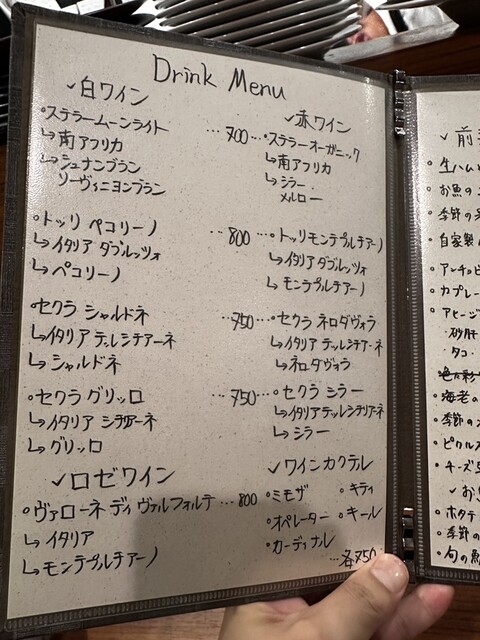 Drink Menu
✓白ワイン
◦ステラームーンライト …700…
↳南アフリカ
↳シュナンブラン
ソーヴィニヨンブラン
◦トッリ ペコリーノ …800…
↳イタリア ダブルッツォ
↳ペコリーノ
◦セクラ シャルドネ …750…
↳イタリア デッレシチアーネ
↳シャルドネ
◦セクラ グリッロ …750…
↳イタリア シチリアーネ
↳グリッロ
✓ロゼワイン
◦ヴァローネ ディ ヴァルフォルテ …800
↳イタリア
↳モンテプルチアーノ
✓赤ワイン
◦ステラーオーガニック
↳南アフリカ
↳シラー・
メルロー
◦トッリモンテプルチアーノ
↳イタリア ダブルッツォ
↳モンテプルチアーノ
◦セクラ ネロダヴォラ
↳イタリア デッレシチアーネ
↳ネロダヴォラ
◦セクラ シラー
↳イタリアデッレシチリアーネ
↳シラー
✓ワインカクテル
◦ミモザ ◦キティ
◦オペレーター ◦キール
◦カーディナル
…各750
✓前
◦生ハム
◦お魚の
◦季節の
◦自家製
◦アンチョビ
◦カプレー
◦アヒージ
砂肝
タコ・
◦海老の
◦季節の
◦ピクルス
◦チーズ
✓お
◦ホタテ
◦季節の
◦旬の魚